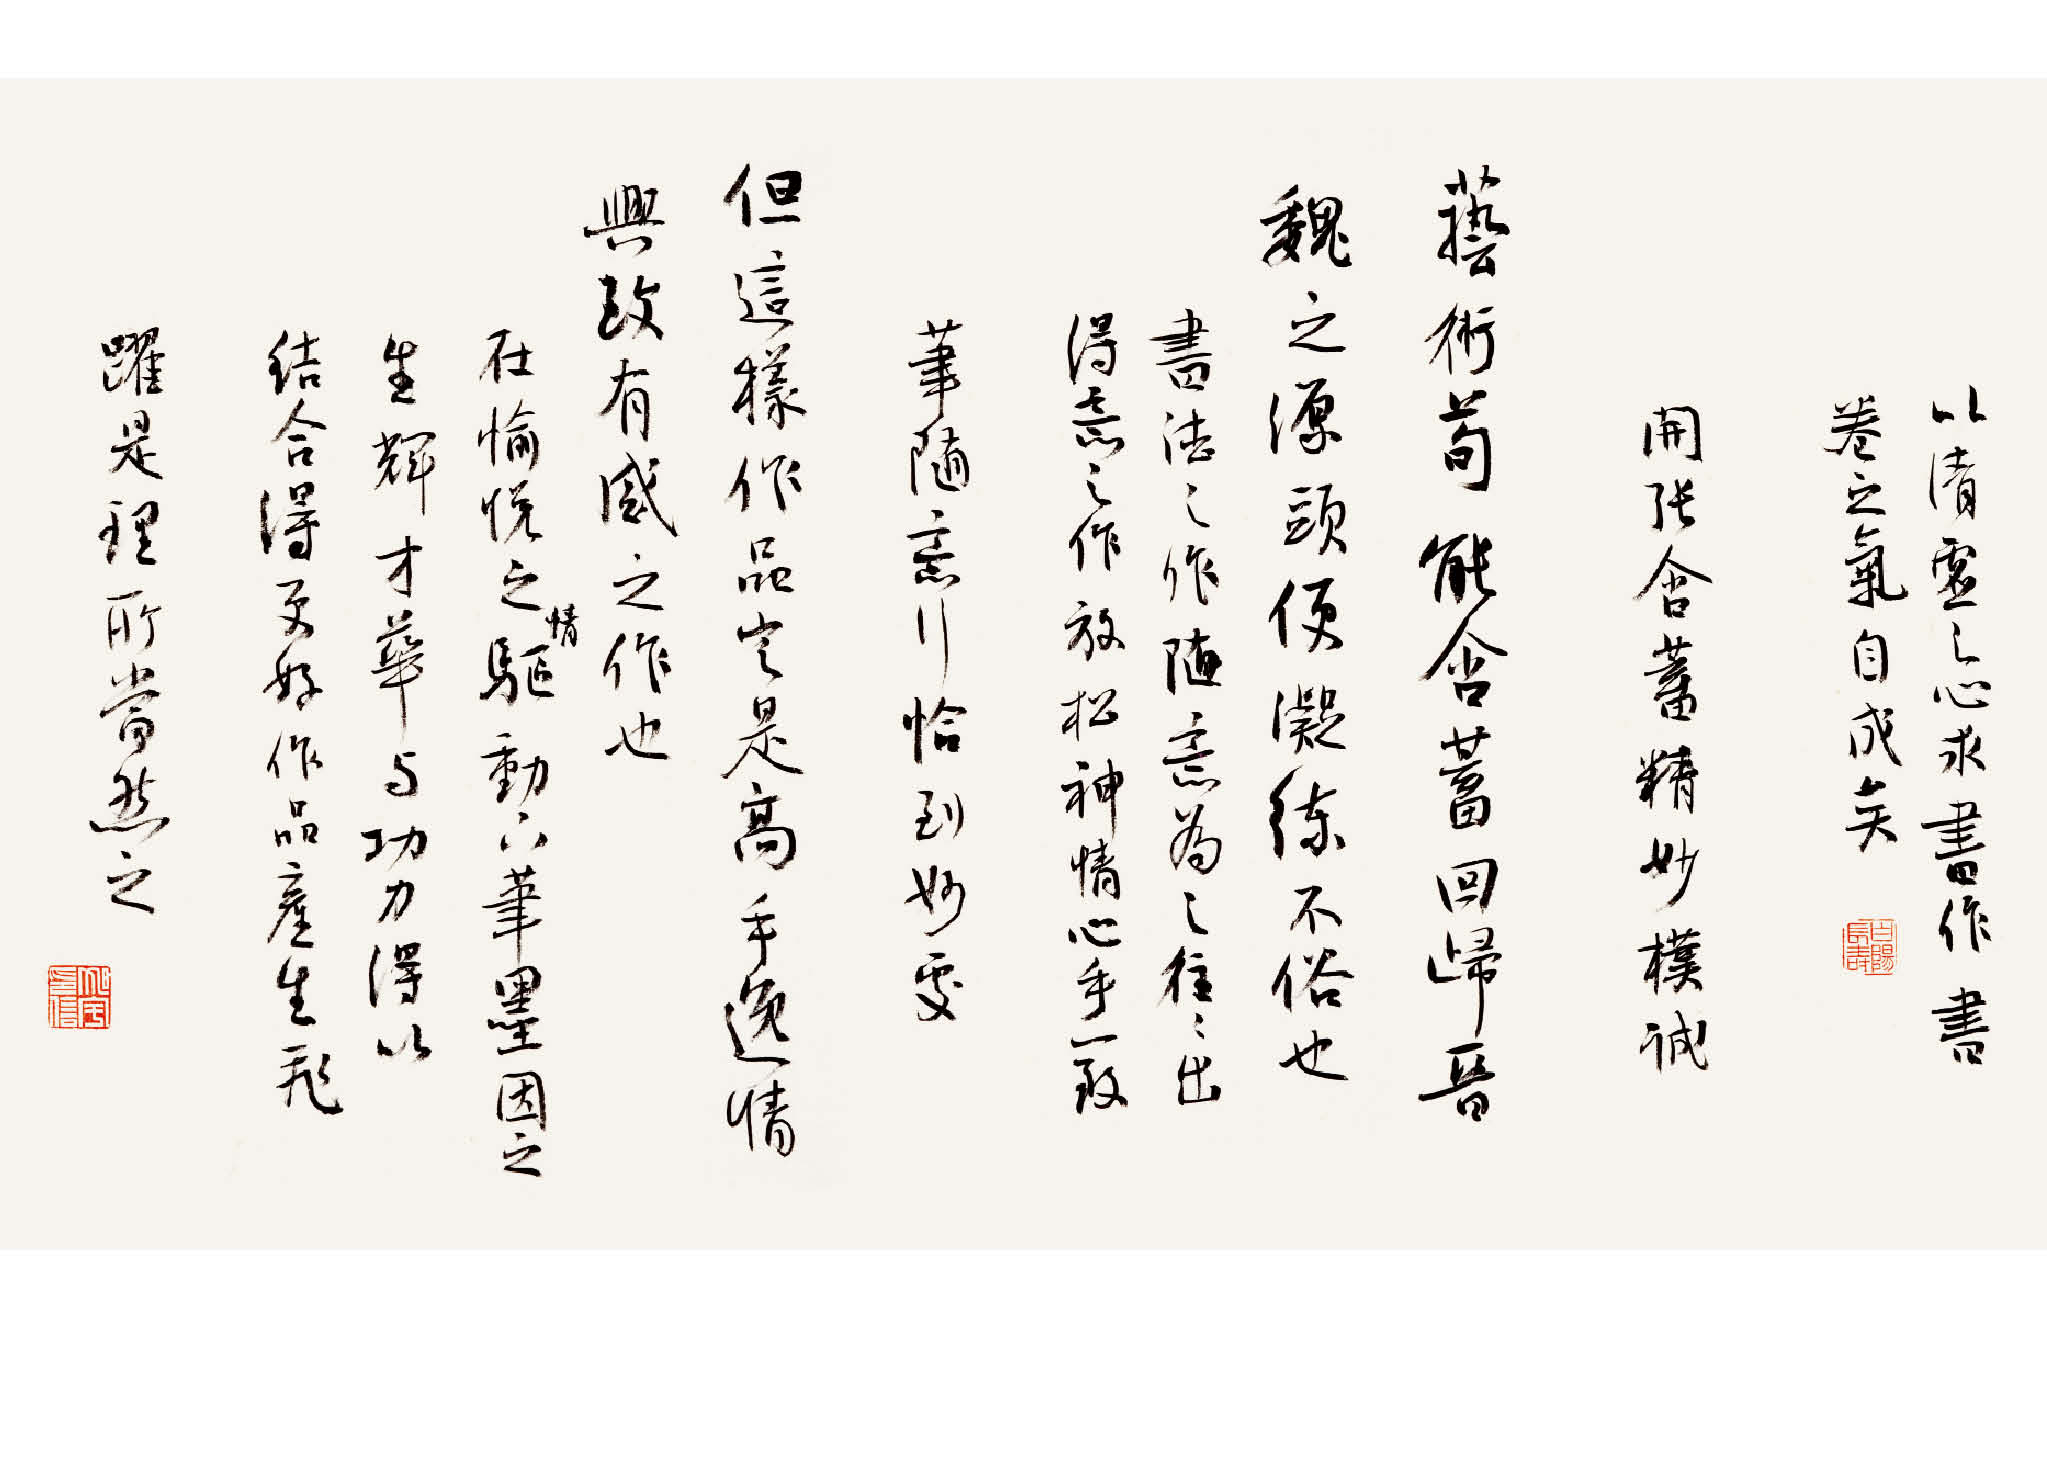 以清虛之心求書作書
卷之氣自成矣
開張含蓄精妙樸誠
藝術苟能含蓄回歸晉
魏之源頭便凝練不俗也
書法之作隨意為之往々出
得意之作放松神情心手一致
筆隨意行恰到妙處
但這樣作品定是高手逸情
興致有感之作也
在愉悅之情驅動下筆墨因之
生輝才華与功力得以
结合得更好作品產生飛
躍是理所當然之